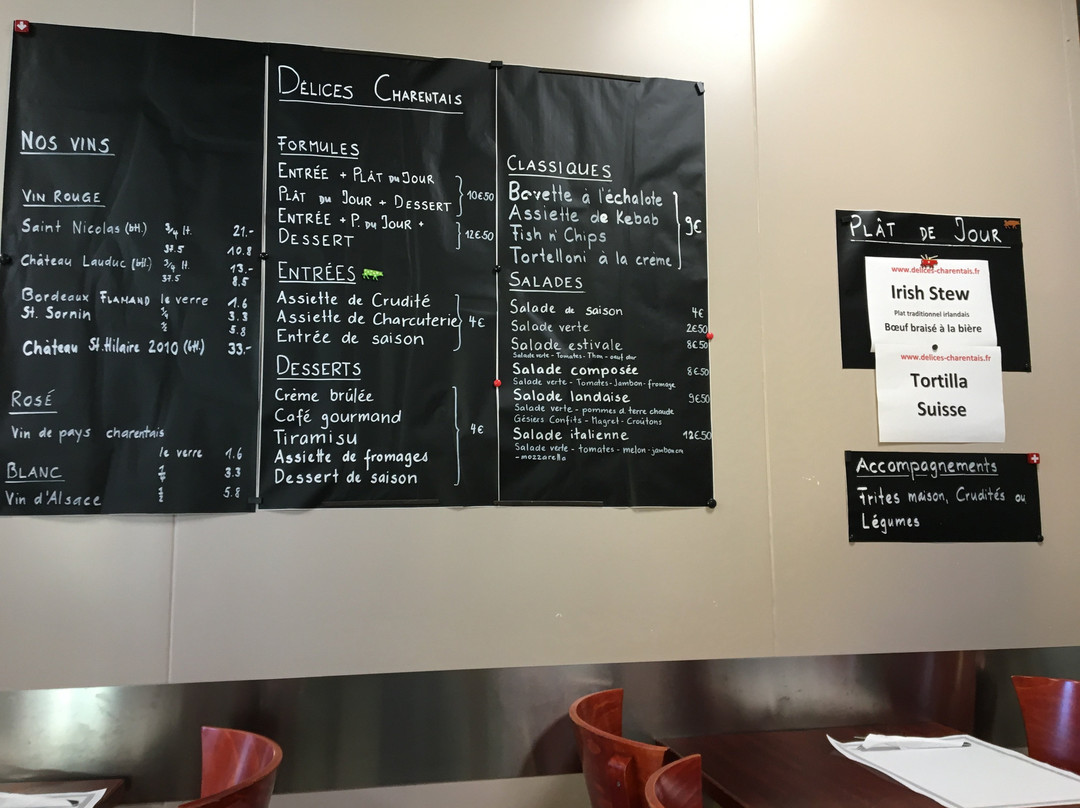 NOS VINS
VIN ROUGE
Saint Nicolas (btl.) 3/4 lt. 21.-
37.5 10.8
Château Lauduc (btl.) 3/4 lt. 13.-
37.5 8.5
Bordeaux FLAMAND le verre 1.6
St. Sornin 1/4 3.3
1/2 5.8
Château St.Hilaire 2010 (btl.) 33.-
ROSÉ
Vin de pays charentais
le verre 1.6
BLANC 1/4 3.3
Vin d'Alsace 1/2 5.8
DÉLICES CHARENTAIS
FORMULES
ENTRÉE + PLÂT DU JOUR
PLÂT DU JOUR + DESSERT 10€50
ENTRÉE + P. DU JOUR +
DESSERT 12€50
ENTRÉES
Assiette de Crudité
Assiette de Charcuterie 4€
Entrée de saison
DESSERTS
Crème brûlée
Café gourmand
Tiramisu 4€
Assiette de fromages
Dessert de saison
CLASSIQUES
Bavette à l'échalote
Assiette de Kebab 9€
Fish n' Chips
Tortelloni à la crème
SALADES
Salade de saison 4€
Salade verte 2€50
Salade estivale 8€50
Salade verte - Tomates - Thon - oeuf dur
Salade composée 8€50
Salade verte - Tomates - Jambon - fromage
Salade landaise 9€50
Salade verte - pommes d. terre chaude
Gésiers Confits - Magret - Croûtons
Salade italienne 12€50
Salade verte - tomates - melon - jambon
- mozzarella
PLÂT DE JOUR
www.delices-charentais.fr
Irish Stew
Plat traditionnel irlandais
Bœuf braisé à la bière
www.delices-charentais.fr
Tortilla
Suisse
Accompagnements
Frites maison, Crudités ou
Légumes